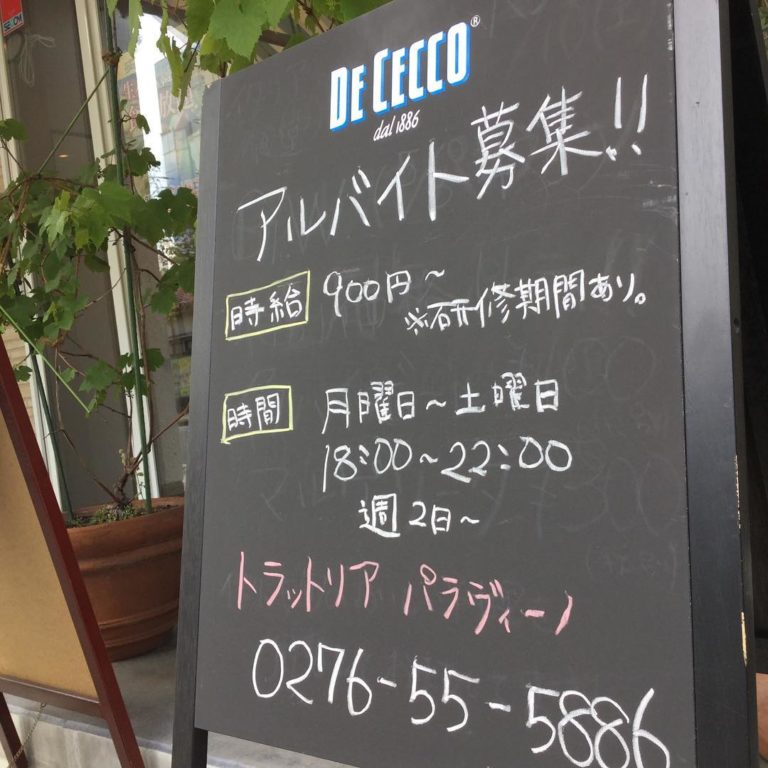 DE CECCO®
dal 1886
アルバイト募集!!
時給 900円～
※研修期間あり。
時間 月曜日～土曜日
18:00～22:00
週2日～
トラットリア パラヴィーノ
0276-55-5886